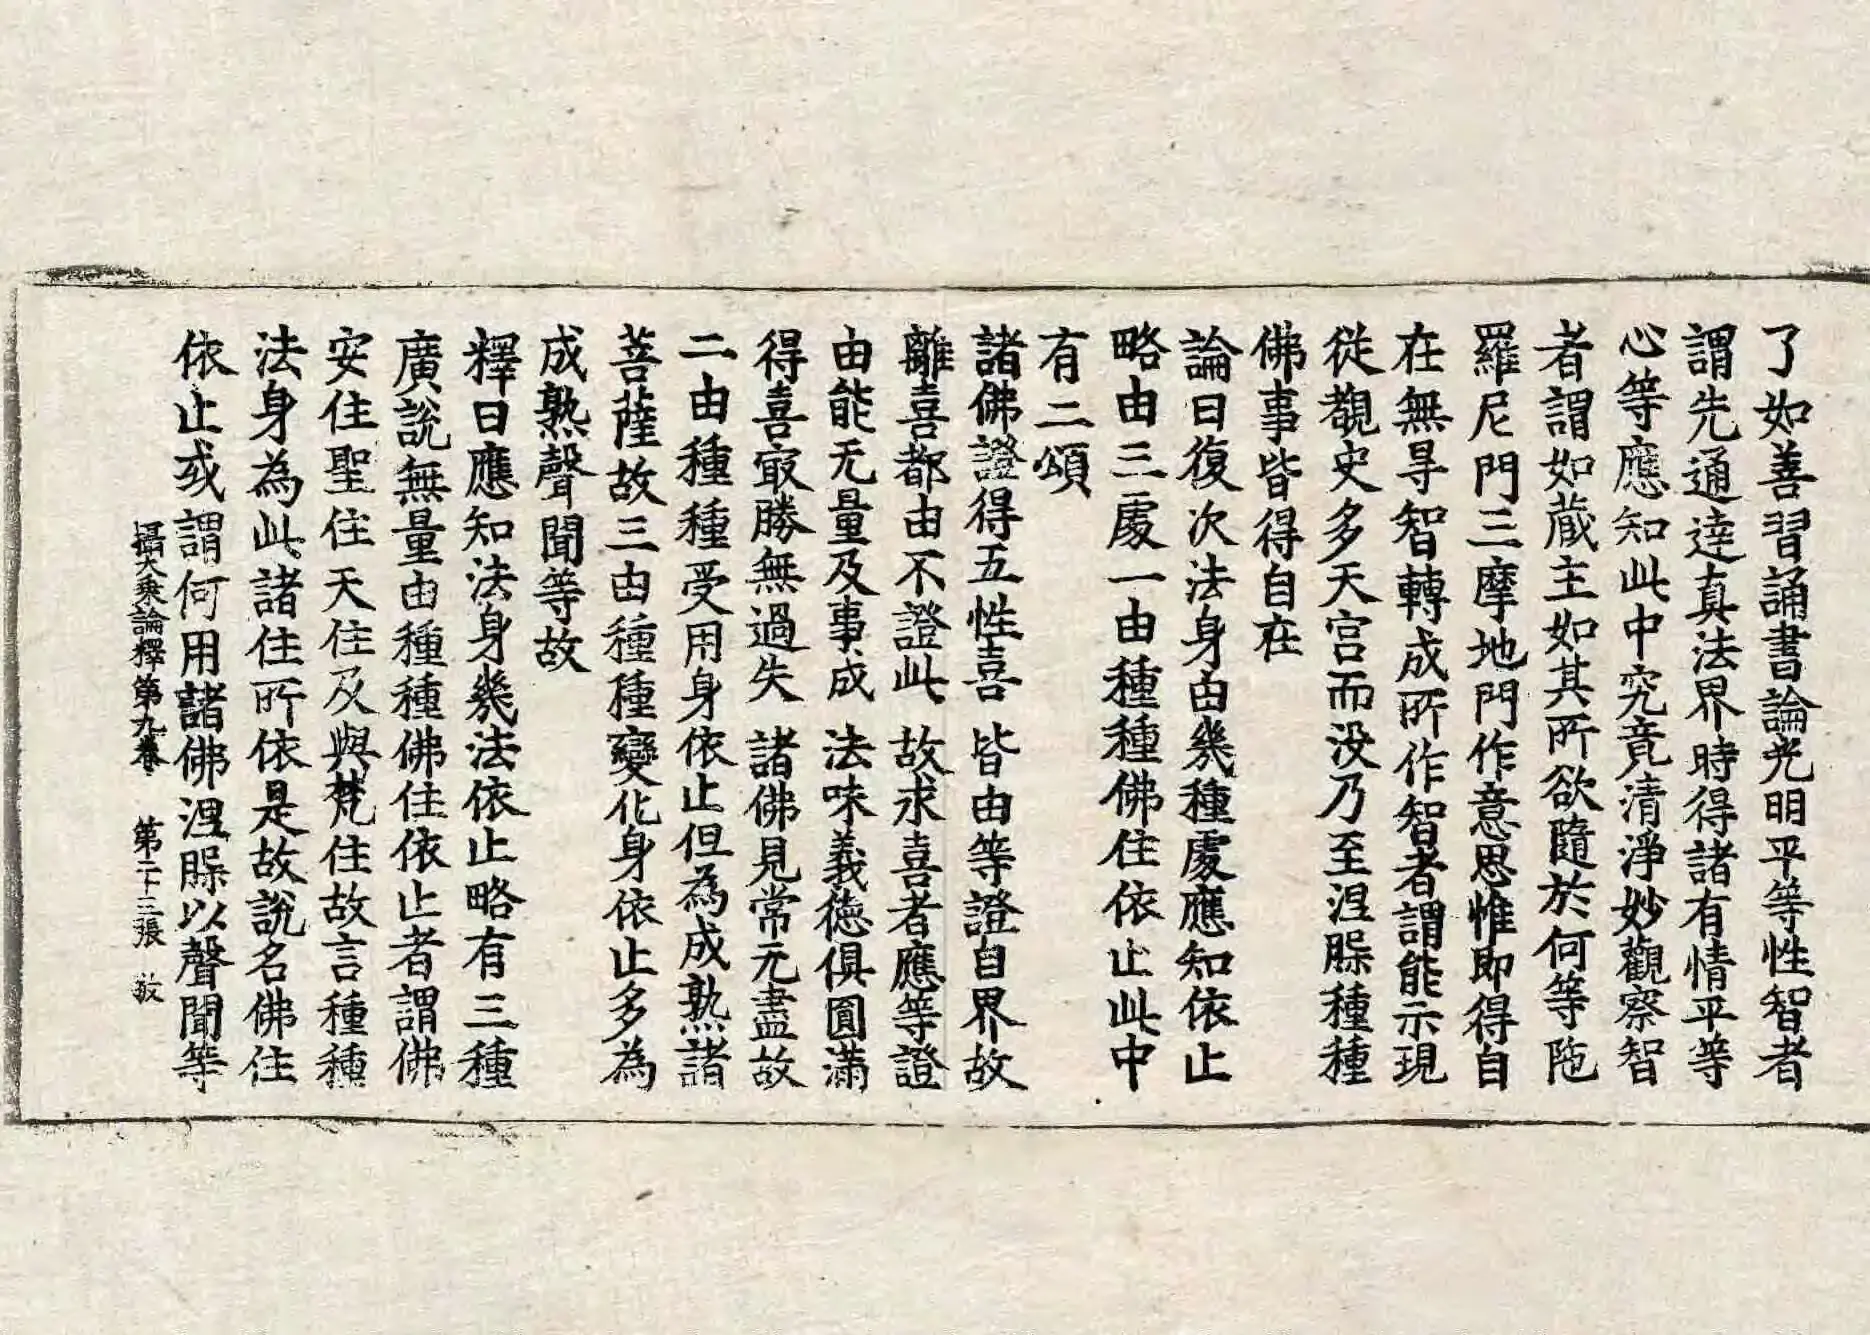 了如善習誦書論光明平等性智者
謂先通達真法界時得諸有情平等
心等應知此中究竟清淨妙觀察智
者謂如藏主如其所欲隨於何等陁
羅尼門三摩地門作意思惟即得自
在無㝵智轉成所作智者謂能示現
從覩史多天宮而没乃至涅槃種種
佛事皆得自在
論曰復次法身由幾種處應知依止
略由三處一由種種佛住依止此中
有二頌
諸佛證得五性喜 皆由等證自界故
離喜都由不證此 故求喜者應等證
由能无量及事成 法味義德俱圓滿
得喜㝡勝無過失 諸佛見常无盡故
二由種種受用身依止但為成熟諸
菩薩故三由種種變化身依止多為
成熟聲聞等故
釋曰應知法身幾法依止略有三種
廣說無量由種種佛住依止者謂佛
安住聖住天住及與梵住故言種種
法身為此諸住所依是故說名佛住
依止或謂何用諸佛涅槃以聲聞等
攝大乘論釋第九卷 第二十三張 敍